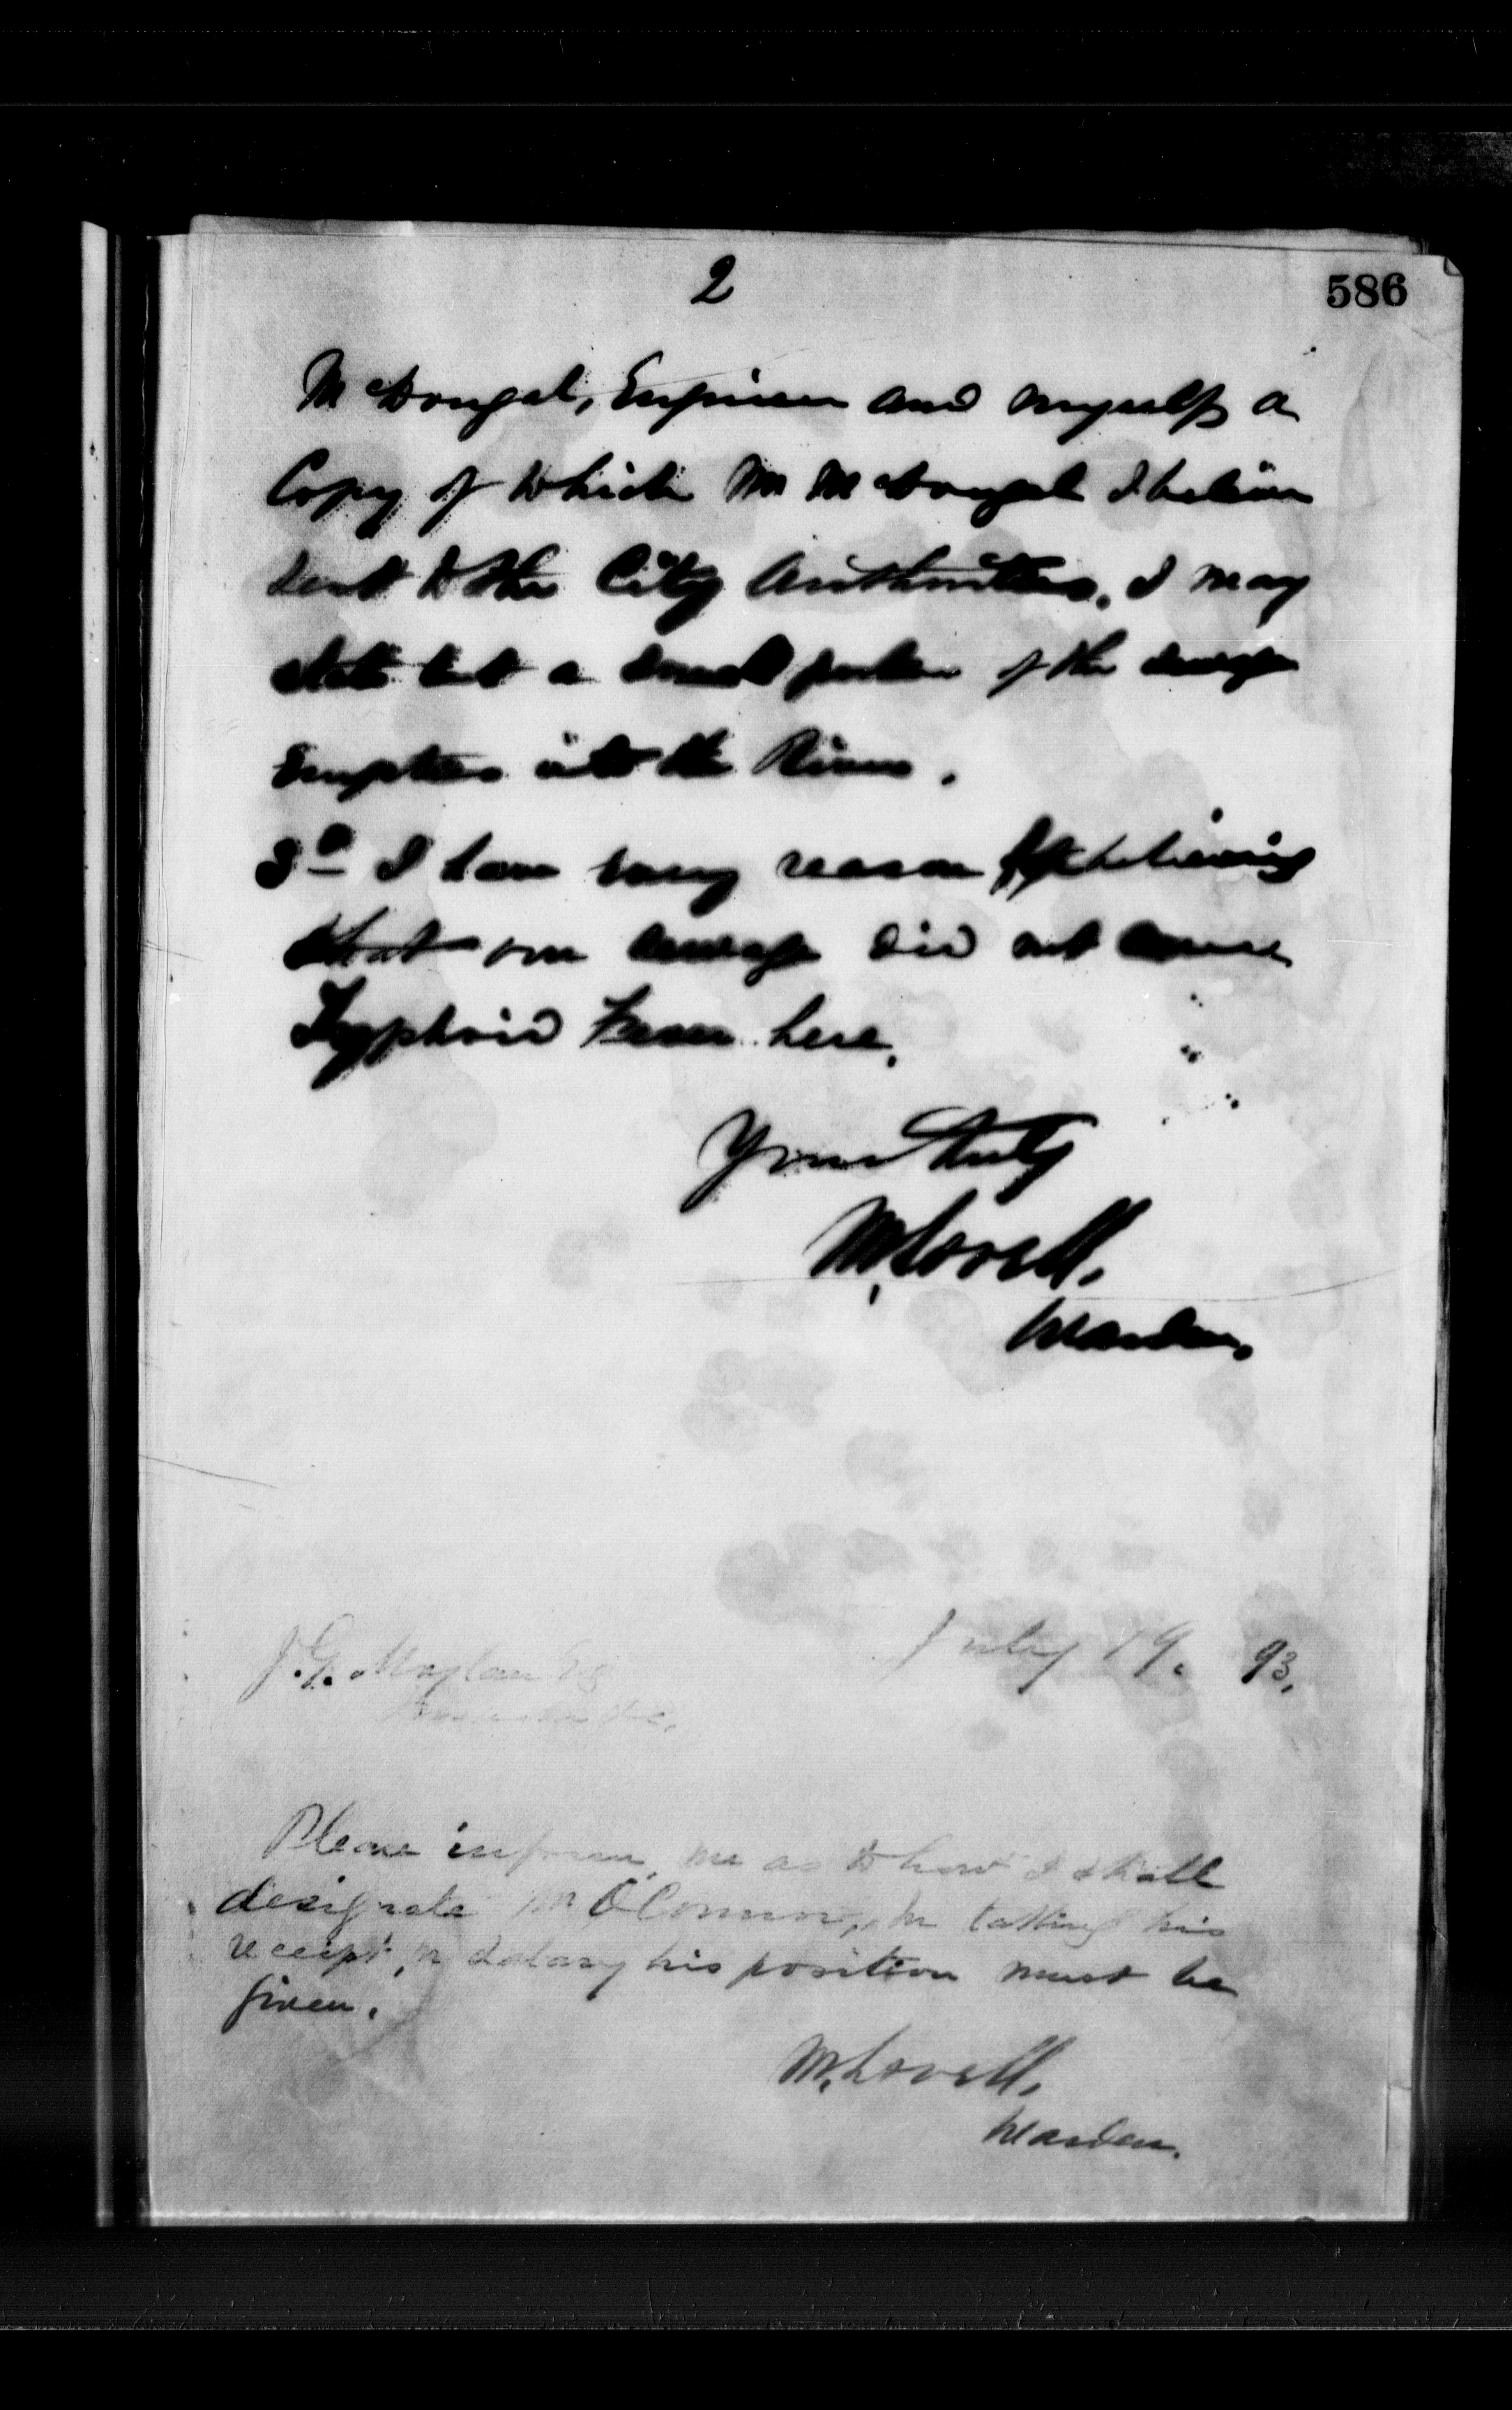 2
586
McDougal, Engineer and myself, a
Copy of which Mr McDougal I believe
sent to the City Authorities. I may
state but a small portion of the sewage
Empties into the River.
3º I have every reason for believing
that our sewage did not cause
Typhoid Fever here.
Yours truly
M. Lovell,
Warden.
July 19. 93.
J. G. Moylan Esq
Please inform me as to how I shall
designate Mr O'Connor, in taking his
receipt, in salary his position must be
given.
M. Lovell,
Warden.